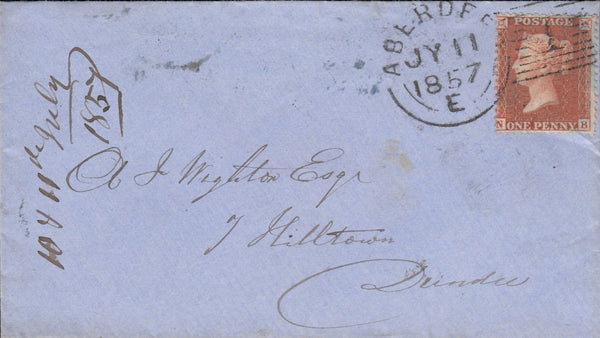 ABERDE
JY 11
1857
E
POSTAGE
ONE PENNY
N B
10 & 11th July
1857
A J Wighton Esqr
7 Hilltown
Dundee